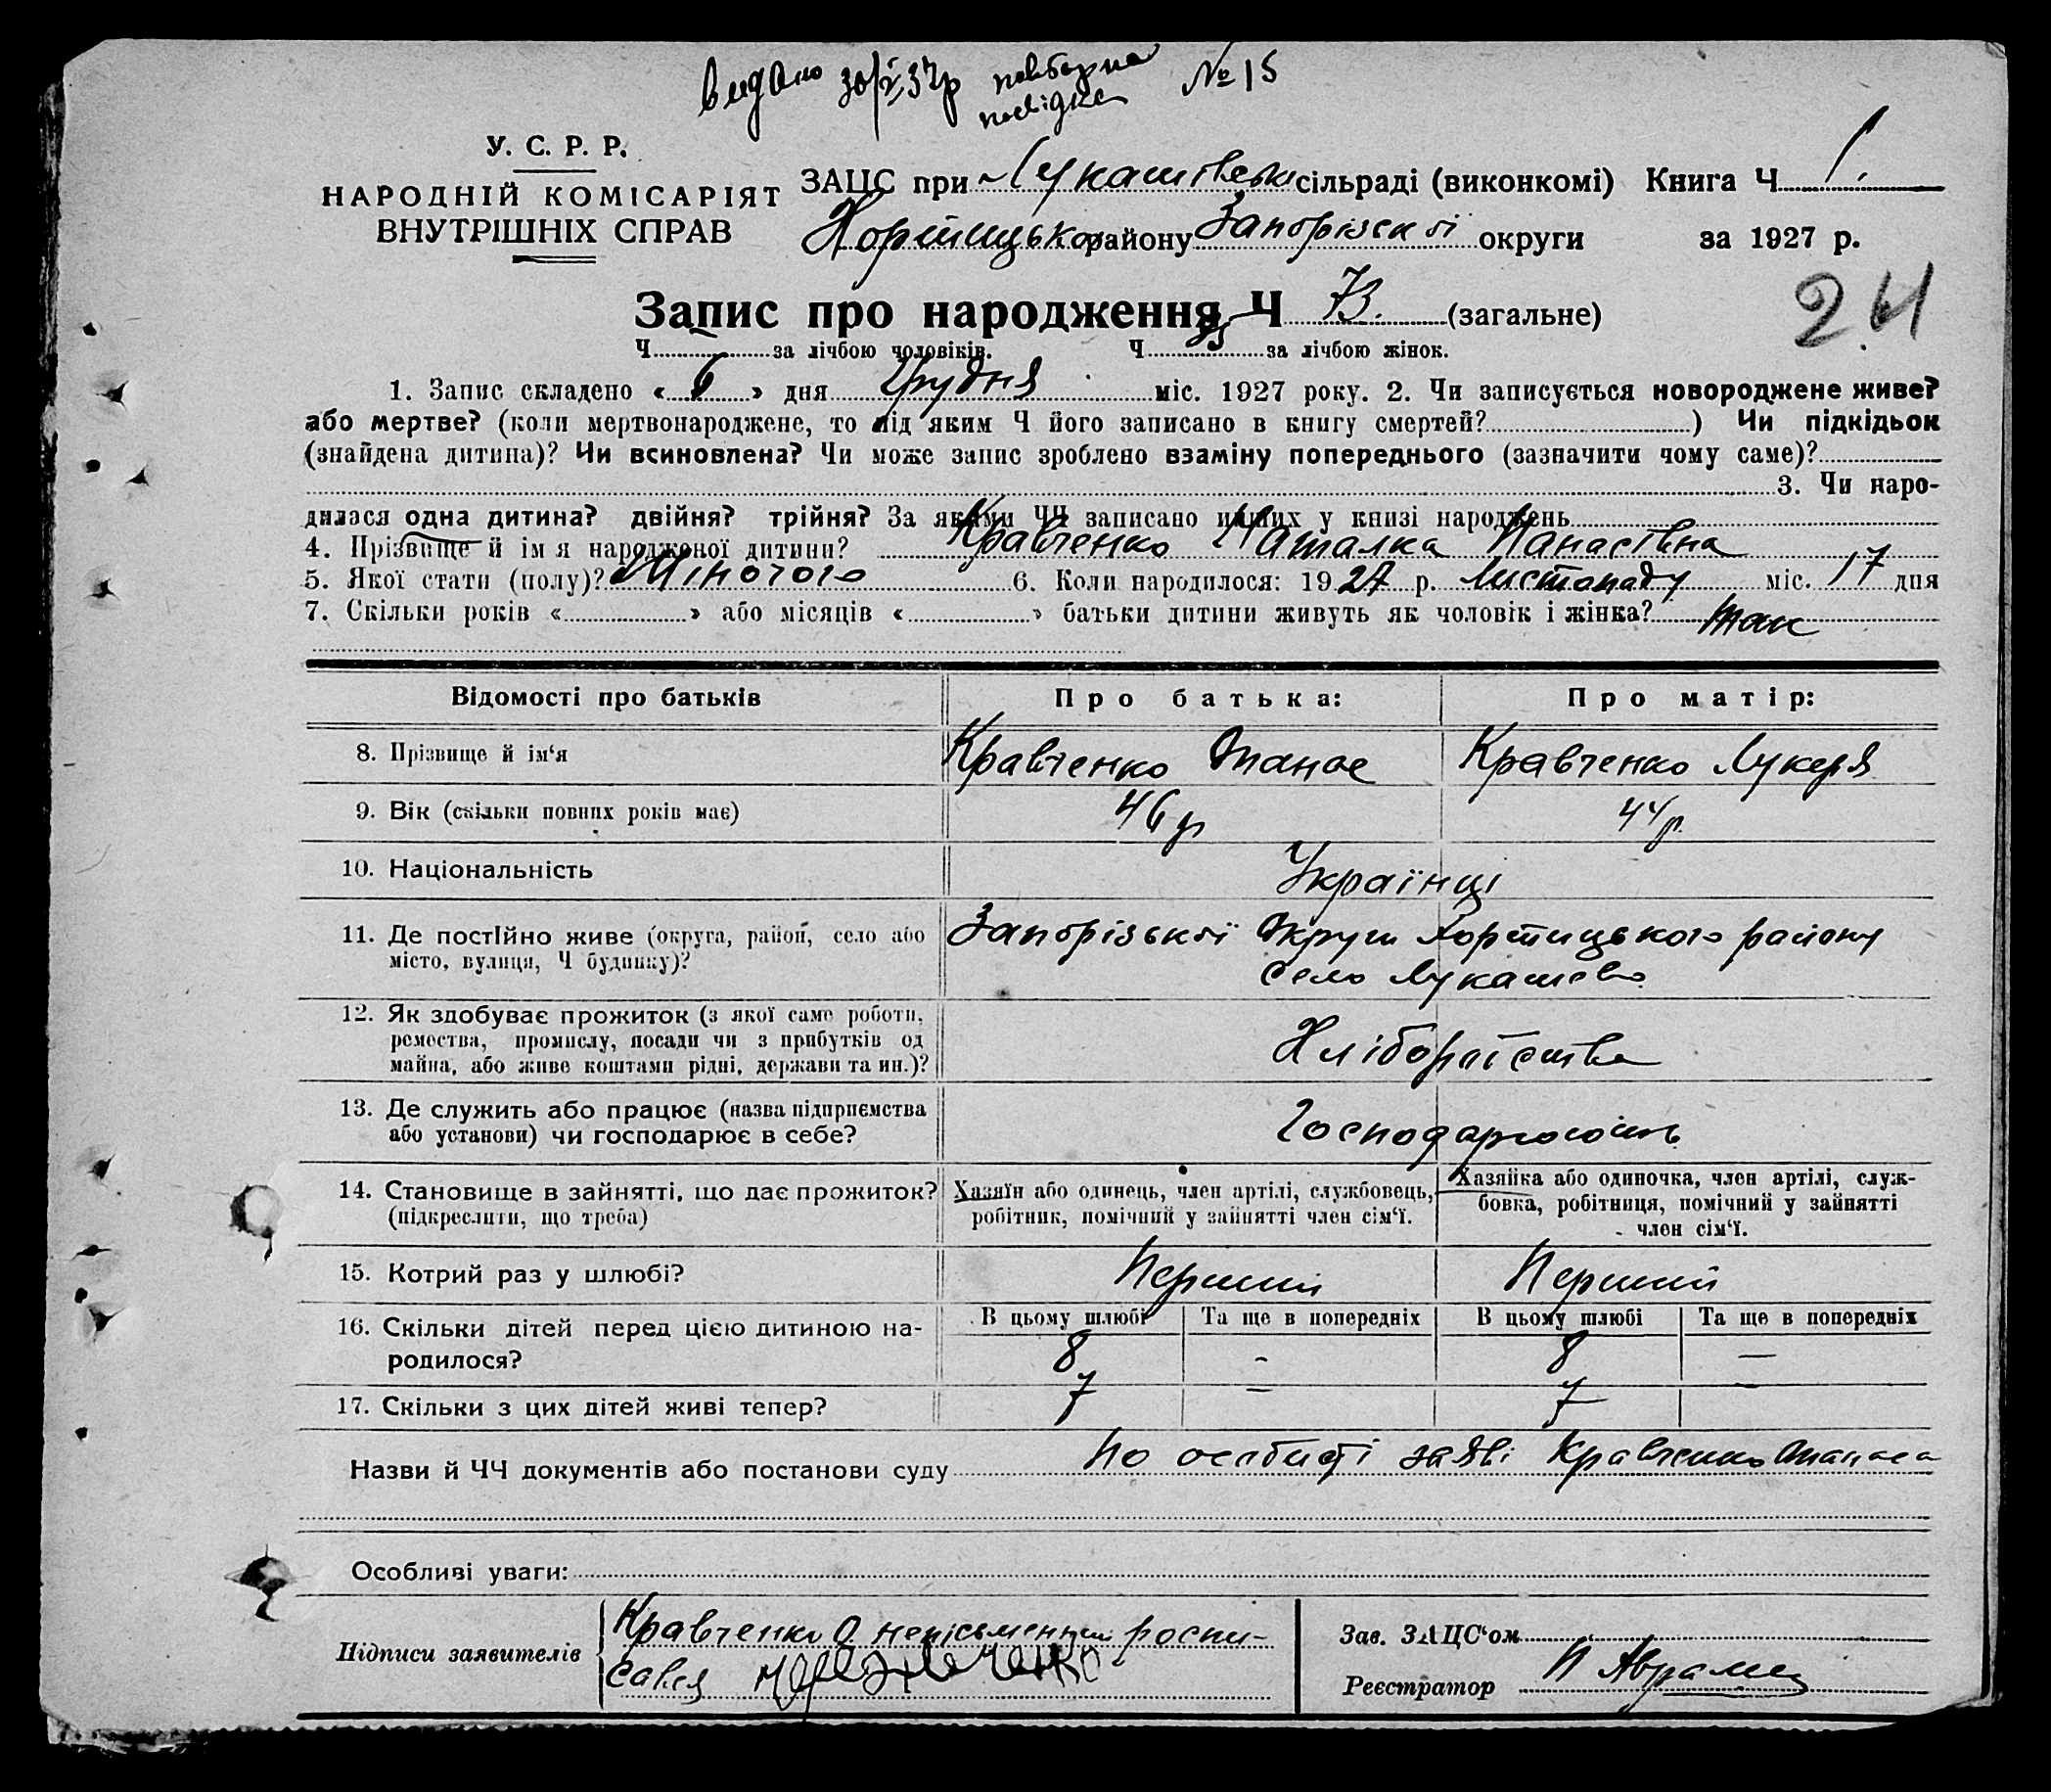 Видано 30/V 37р повторна №15
посвідка
У. С. Р. Р.
НАРОДНІЙ КОМІСАРІЯТ
ВНУТРІШНІХ СПРАВ
ЗАЦС при Лукашівській сільраді (виконкомі) Книга Ч 1.
Хортицького району Запорізської округи за 1927 р.
24
Запис про народження Ч 73. (загальне)
Ч за лічбою чоловіків. Ч 35 за лічбою жінок.
1. Запис складено « 6 » дня Грудня міс. 1927 року. 2. Чи записується новороджене живе?
або мертве? (коли мертвонароджене, то під яким Ч його записано в книгу смертей? ) Чи підкідьок
(знайдена дитина)? Чи всиновлена? Чи може запис зроблено взаміну попереднього (зазначити чому саме)?
3. Чи наро-
дилася одна дитина? двійня? трійня? За якими ЧЧ записано инших у книзі народжень
4. Прізвище й ім я народженої дитини? Кравченко Наталка Панасівна
5. Якої стати (полу)? Жіночого 6. Коли народилося: 1927 р. Листопаду міс. 17 дня
7. Скільки років « » або місяців « » батьки дитини живуть як чоловік і жінка? так
Відомості про батьків Про батька: Про матір:
8. Прізвище й ім‘я Кравченко Опанас Кравченко Лукеря
9. Вік (скільки повних років має) 46 р 44 р.
10. Національність Українці
11. Де постІйно живе (округа, район, село або Запорізької Округи Хортицького району
місто, вулиця, Ч будинку)? село Лукашево
12. Як здобуває прожиток (з якої саме роботи,
ремества, промислу, посади чи з прибутків од Хліборобства
майна, або живе коштами рідні, держави та ин.)?
13. Де служить або працює (назва підприємства
або установи) чи господарює в себе? Господарюють
14. Становище в зайнятті, що дає прожиток? Хазяїн або одинець, член артілі, службовець, Хазяйка або одиночка, член артілі, служ-
(підкреслити, що треба) робітник, помічний у зайнятті член сім‘ї. бовка, робітниця, помічний у зайнятті
член сім‘ї.
15. Котрий раз у шлюбі? Перший Перший
16. Скільки дітей перед цією дитиною на- В цьому шлюбі Та ще в попередніх В цьому шлюбі Та ще в попередніх
родилося? 8 - 8 —
17. Скільки з цих дітей живі тепер? 7 — 7 —
Назви й ЧЧ документів або постанови суду По особистій заяві Кравченко Опанаса
Особливі уваги:
Підписи заявителів Кравченко О неписьменний роспи-
сався
Зав. ЗАЦС‘ом
Реєстратор П Аврамец